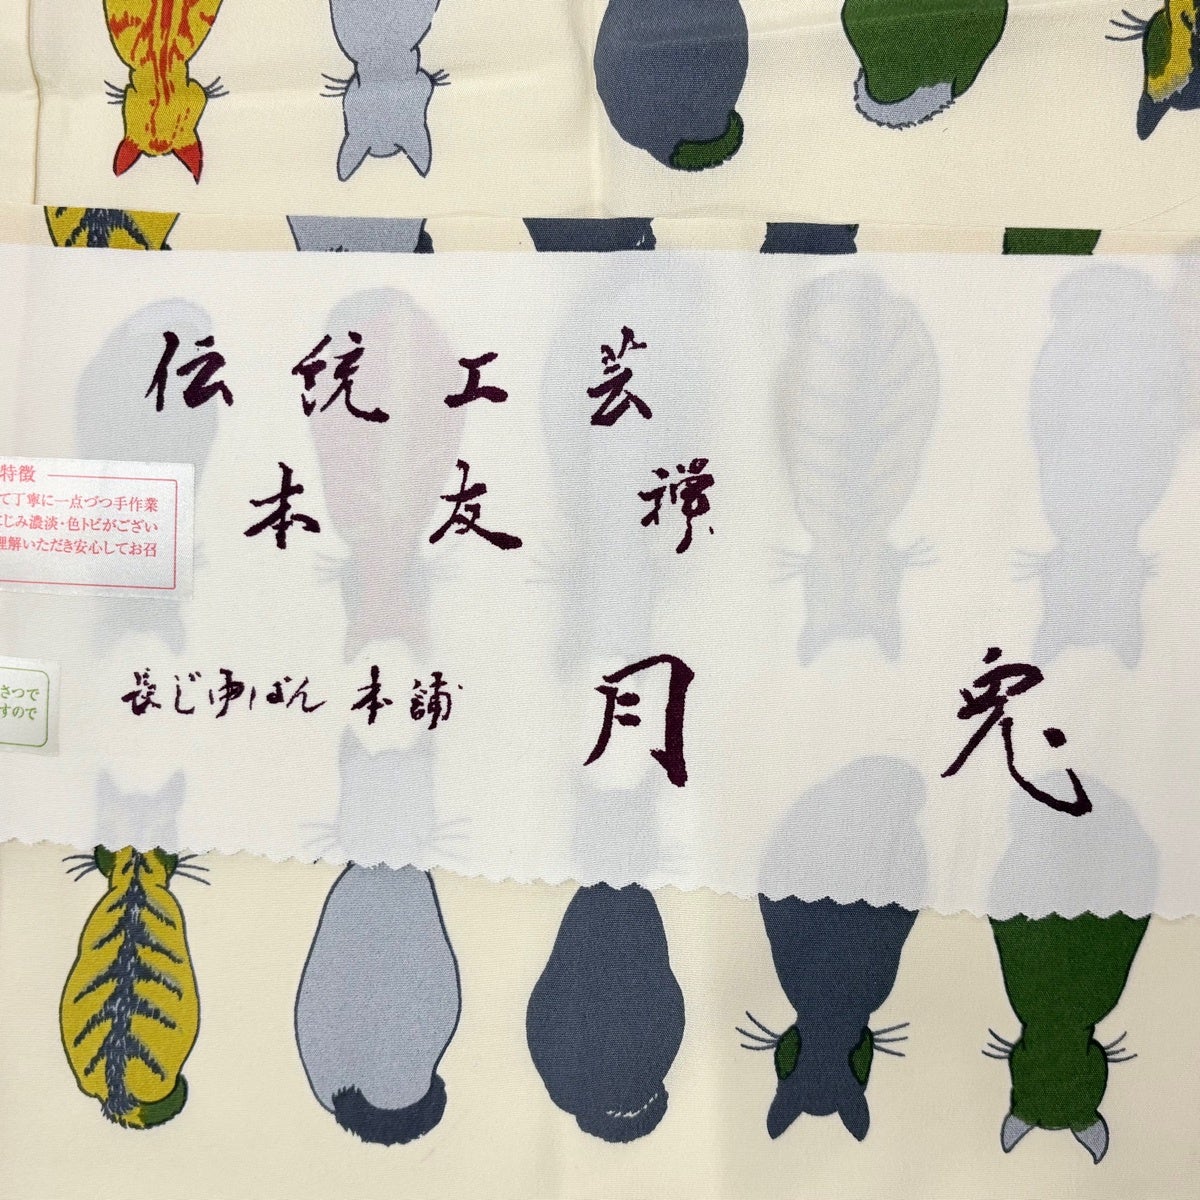 伝統工芸
本友禅
特徴
て丁寧に一点づつ手作業
じみ濃淡・色トビがござい
理解いただき安心してお召
長じゅばん本舗 月兎
さつで
すので